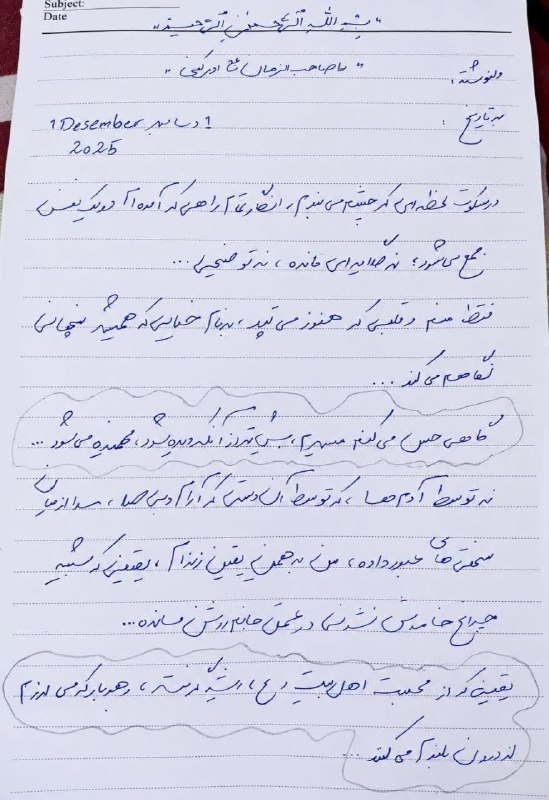 Subject:
Date
"بسم الله الرحمن الرحیم"
"یا صاحب الزمان عج ادرکنی"
دلنوشته:
به تاریخ:
1 دسامبر 1Desember
2025
در سکوت لحظه ای که چشم می بندم، انگار تمام راهی که آمده ام در یک نفس
جمع می شود؛ نه گلایه ای مانده، نه توضیحی...
فقط منم و قلبی که هنوز می تپد، به نام خدایی که همیشه پنهانی
نگاهم می کند...
گاهی حس می کنم مسیرم، بیش تر از آنکه دیده شود، فهمیده می شود...
نه توسط آدم ها، که توسط آن دستی که آرام و بی صدا، مرا از میان
سختی های عبور داده، من به همین یقین زنده ام، یقینی که شبیه
چراغ خاموش نشدنی در عمق جانم روشن مانده...
یقینی که از محبت اهل بیت (ع)، ریشه گرفته، و هر بار که می لرزم
از درون بلندم می کند...